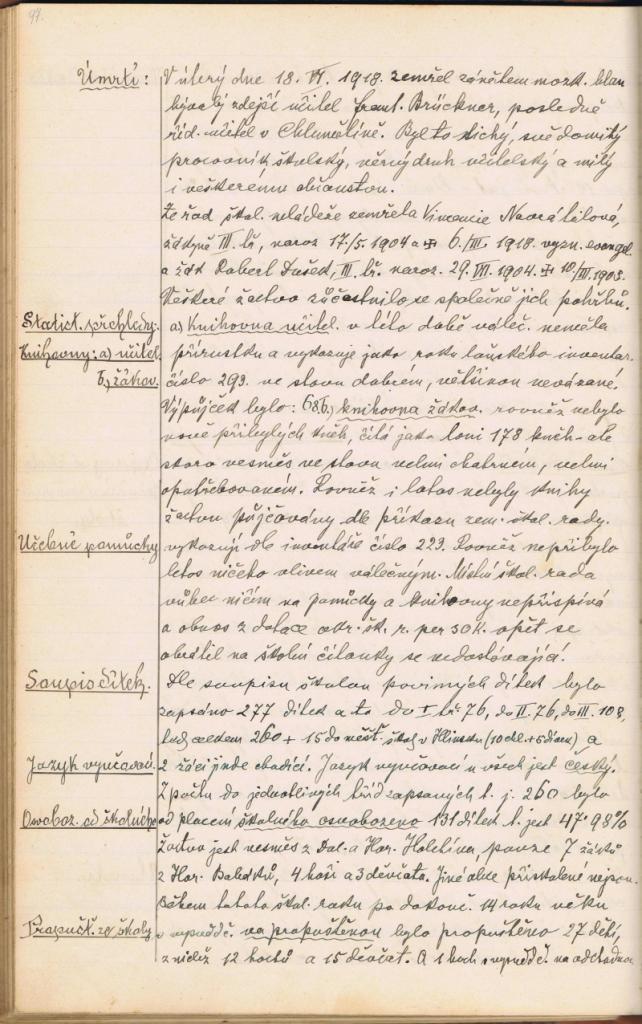 97.
Úmrtí: V úterý dne 18. VI. 1918. zemřel zánětem mozk. blan
bývalý zdejší učitel Frant. Brückner, posledně
říd. učitel v Chlumětíně. Byl to tichý, svědomitý
pracovník školský, věrný druh učitelský a milý
i veškerému občanstvu.
Ze řad škol. mládeže zemřela Vincencie Navrátilová,
žákyně III. tř., naroz 17./5. 1904 a 6./III. 1918. vyzn. evangel.
a žák Robert Dušek, III. tř. naroz. 29. VII. 1904. 10./III. 1908.
Veškeré žactvo zúčastnilo se společně jich pohřbů.
Statist. přehledy: a) Knihovna učitel. v této době váleč. neměla
Knihovny: a) učitel. přírustku a vykazuje jako roku loňského inventar.
b) žákov. číslo 293. ve stavu dobrém, většinou nevázané.
Výpůjček bylo: 68. b) knihovna žákov. rovněž nebylo
nově přibylých knih, čítá jako loni 178 knih - ale
skoro vesměs ve stavu velmi chatrném, velmi
opotřebovaném. Rovněž i letos nebyly knihy
žactvu půjčovány dle příkazu zem. škol. rady.
Učebné pomůcky vykazují dle inventáře číslo 223. Rovněž nepřibylo
letos ničeho vlivem válečným. Místní škol. rada
vůbec ničím na pomůcky a knihovny nepřispívá
a obnos z dotace okr. šk. r. per 30 K. opět se
obrátil na školní čítanky se nedostávající.
Soupis dítek. Dle soupisu školou povinných dítek bylo
zapsáno 277 dítek a to do I. tř. 76, do II. 76, do III. 108,
tedy celkem 260 + 15 do měšť. školy v Hlinsku (10 chl. + 5 dívek) a
Jazyk vyučovací. 2 žáci jinde chodící. Jazyk vyučovací u všech jest český.
Z počtu do jednotlivých tříd zapsaných t. j. 260 bylo
Osvoboz. od školného od placení školného osvobozeno 131 dítek t. jest 47·98%
Žactvo jest vesměs z Dol. a Hor. Holetína, pouze 7 žáků
z Hor. Babáků, 4 hoši a 3 děvčata. Jiné obce přiškolené nejsou.
Během tohoto škol. roku po dokonč. 14 roku věku
Propušť. ze školy s vysvědč. na propuštěnou bylo propuštěno 27 dětí,
z nichž 12 hochů a 15 děvčat. A 1 hoch s vysvědč. na odchodnou